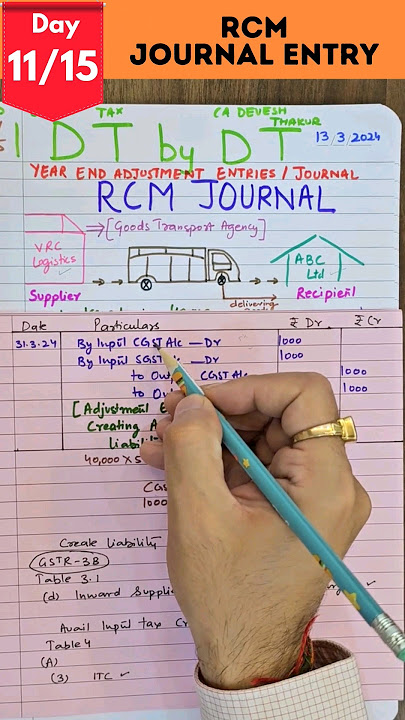 Day
11/15
RCM
JOURNAL ENTRY
TAX
CA DEVESH
THAKUR
IDT by DT
13/3/2024
YEAR END ADJUSTMENT ENTRIES / JOURNAL
RCM JOURNAL
⇒ [Goods Transport Agency]
VRC
Logistics
ABC
Ltd
delivering
Supplier
Recipient
Date
Particulars
₹ Dr.
₹ Cr
31.3.24
By Input CGST A/c — Dr
1000
By Input SGST — Dr
1000
to CGST A/c
1000
to
1000
[Adjustment
Creating
40,000 X 5
1000
Create Liability
GSTR-3B
Table 3.1
(d) Inward
Avail Input tax
Table 4
(A)
(3) ITC ✓